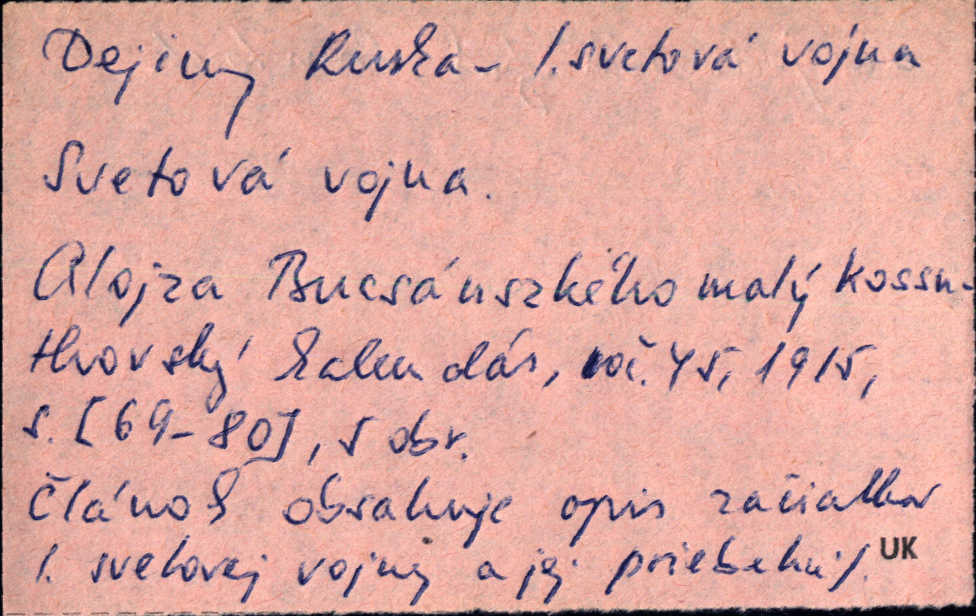 Dejiny Ruska - 1. svetová vojna
Svetová vojna.
Alojza Bucsánszkého malý kossu-
thovský kalendár, roč. 45, 1915,
s. [69-80], 5 obr.
Článok obsahuje opis začiatkov
1. svetovej vojny a jej priebehu/.
UK